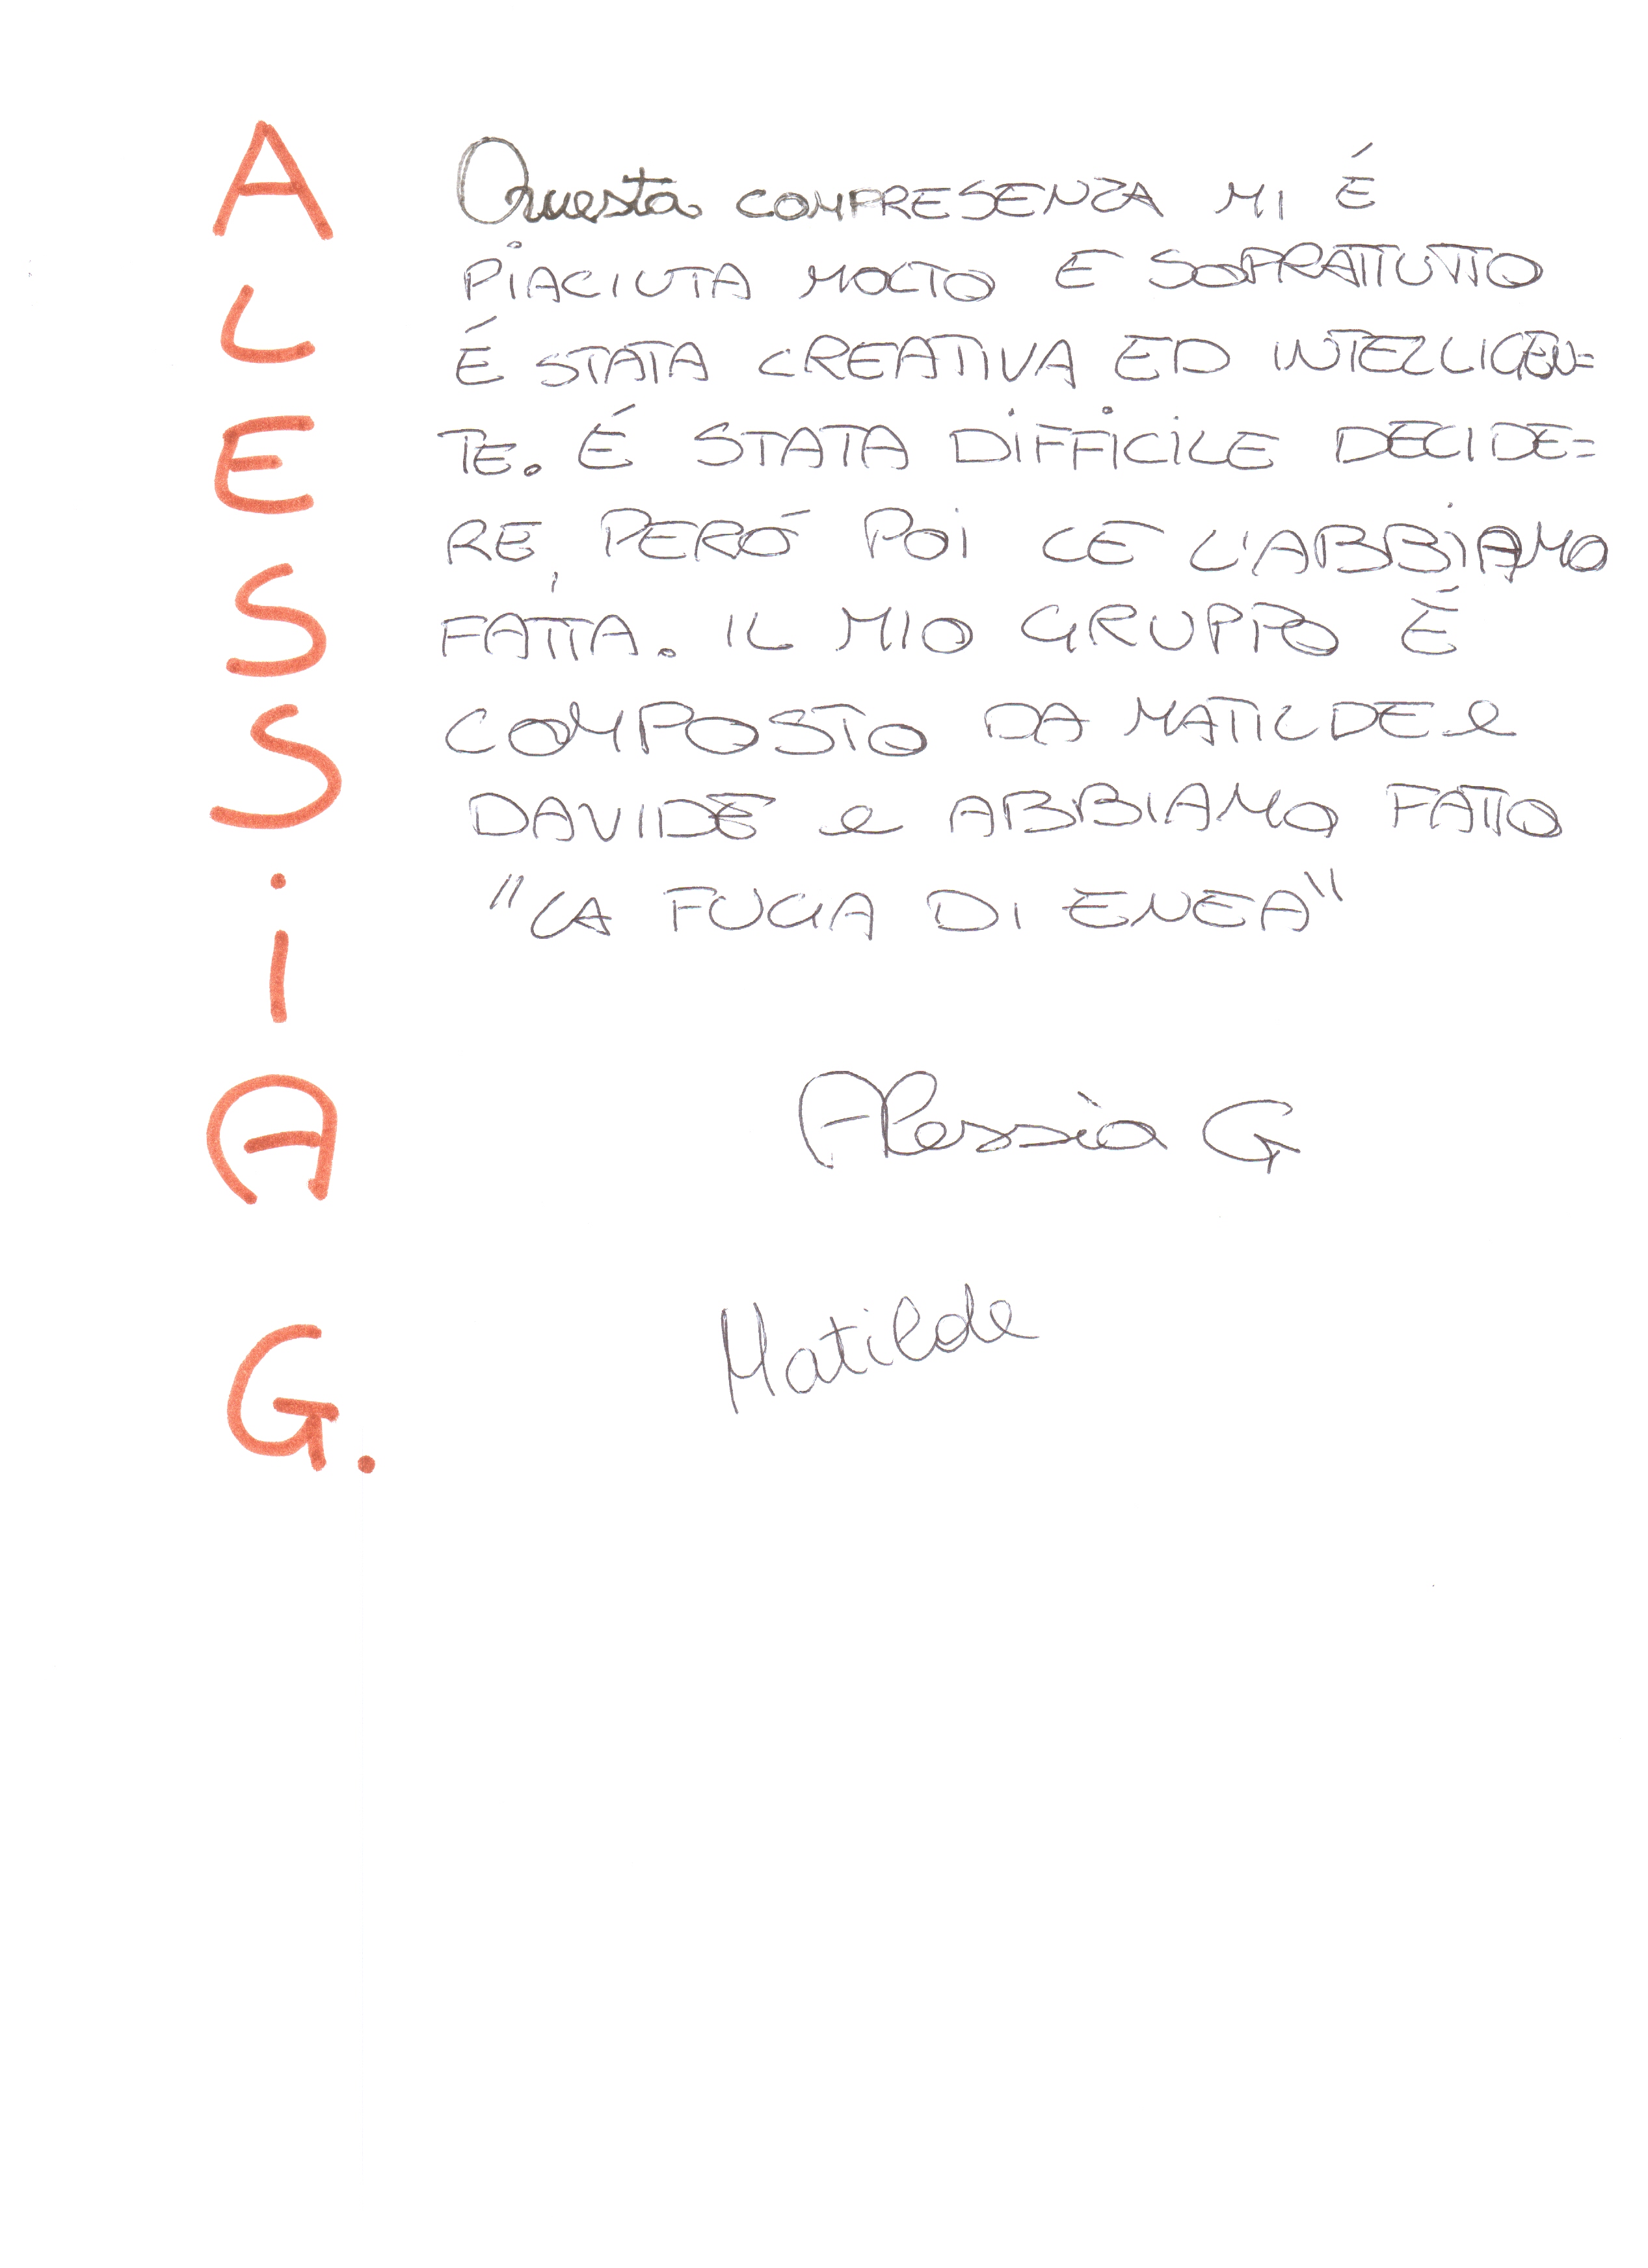 ALESSiA G.
Questa COMPRESENZA MI É
PiACIUTA MOLTO E SOPRATTUTTO
É STATA CREATIVA ED INTELLIGEN=
TE. É STATA DiFFiCiLE DECIDE=
RE, PERÓ POi CE L'ABBiAMO
FATTA. IL MIO GRUPPO É
COMPOSTO DA MATILDE e
DAVIDE e ABBIAMO FATTO
"LA FUGA DI ENEA"
Alessia G
Matilde